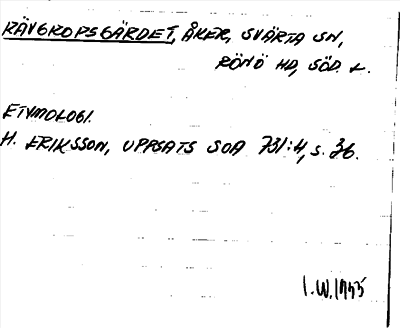 RÄVGROPSGÄRDET, ÅKER, SVÄRTA SN,
RÖNÖ HD, SÖD. L.
ETYMOLOGI.
H. ERIKSSON, UPPSATS SOA 731:4, s. 36.
I.W. 1975